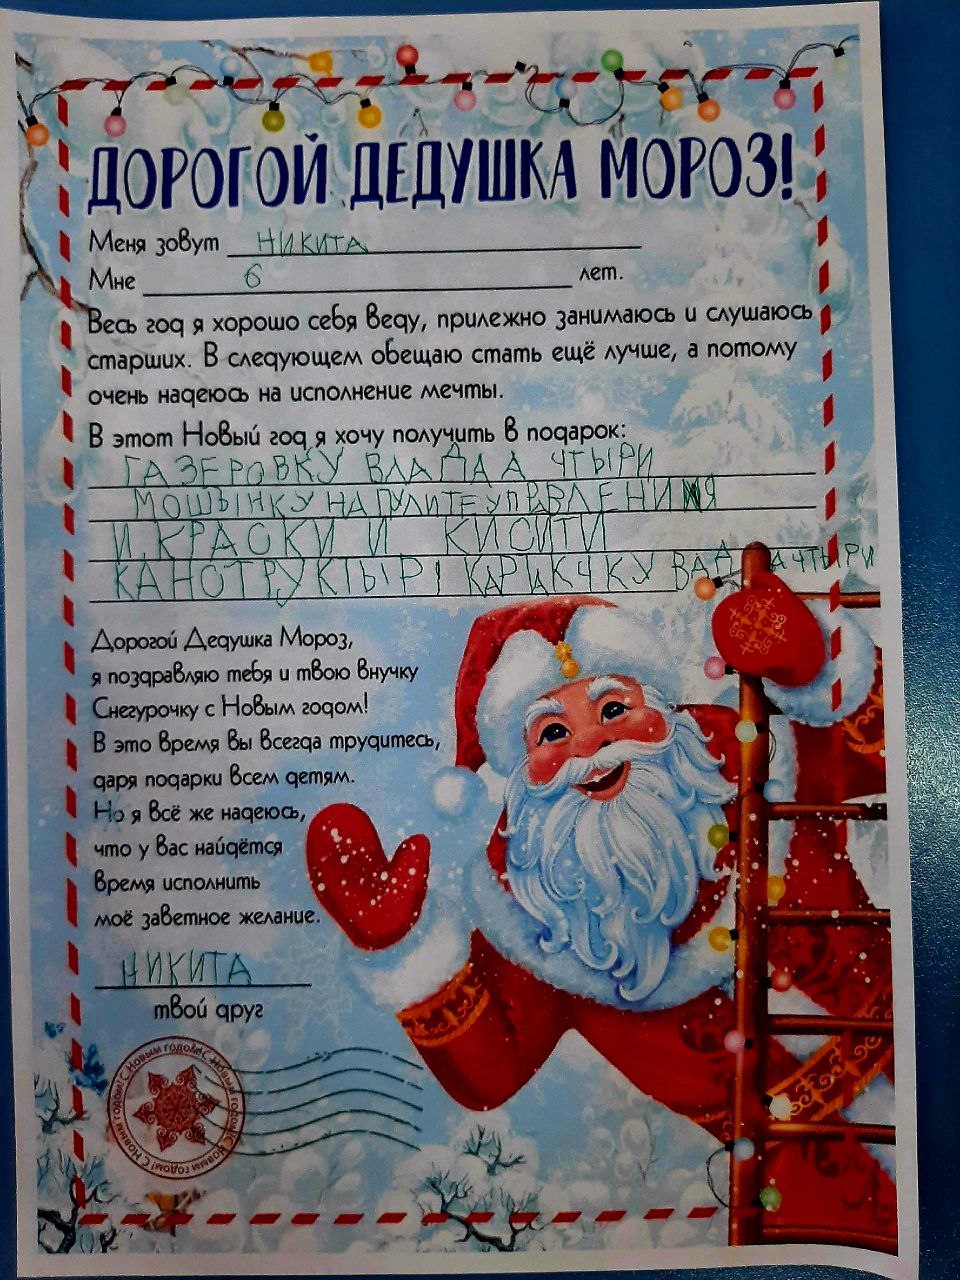 ДОРОГОЙ ДЕДУШКА МОРОЗ!
Меня зовут НИКИТА
Мне 6 лет.
Весь год я хорошо себя веду, прилежно занимаюсь и слушаюсь
старших. В следующем обещаю стать ещё лучше, а потому
очень надеюсь на исполнение мечты.
В этот Новый год я хочу получить в подарок:
ГАЗЕРОВКУ ВЛАДА А ЧТЫРИ
МОШЫНКУ НА ПУЛИТЕ УПРВЛЕНИЯ
И КРАСКИ И КИСИТИ
КАНСТРУКТЫРІ КАРТАКЧКУ ВАДА АЧТЫРИ
Дорогой Дедушка Мороз,
я поздравляю тебя и твою внучку
Снегурочку с Новым годом!
В это время Вы всегда трудитесь,
даря подарки всем детям.
Но я всё же надеюсь,
что у Вас найдётся
время исполнить
моё заветное желание.
НИКИТА
твой друг
С Новым годом! С Новым годом! С Новым годом! С Новым годом!